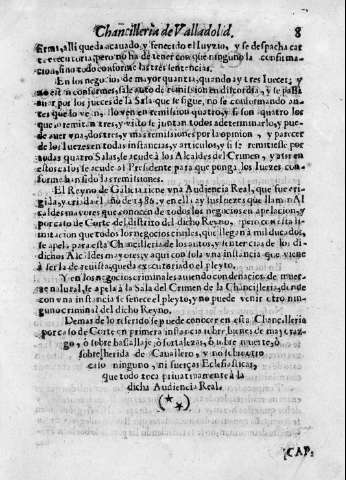 Chancilleria de Valladolid. 8
firma, alli queda acauado, y fenecido el Iuyzio, y se despacha car
ta executoria, pero no ha de tener con que ninguno la confirma-
cion, sino todo conforme las tres sentencias.
En los negocios de mayor quantia, quando ay tres Iueces, y
no estan conformes, sale auto de remission en discordia, y se passa
por los jueces de la Sala que se sigue, no se conformando an-
y si son quatro los
que remiten tres, y visto se juntan todos
auer vna, dos tres, y mas remissiones por la opinion, y parecer
de los Iuezes en todas instancias, y articulos, y si se remitiesse por
todas quatro Salas, se acude à los Alcaldes del Crimen, y aun en
estos casos se acude al Presidente para que ponga los Iuezes con-
forme han sido las remissiones.
El Reyno de Galicia tiene vna Audiencia Real, que fue eri-
gida, y criada el año de 1486. y en ella ay los Iueces que llaman Al
caldes mayores que conocen de todos los negocios en apelacion, y
por caso de Corte del distrito del dicho Reyno, pero con esta li-
mitacion que todos los negocios ciuiles, que llegan à mil ducados,
se apela para esta Chancilleria de los autos, y sentencias de los di-
dichos Alcaldes mayores, y aqui con sola vna instancia que viene
à ser la de reuista, queda executoriado el pleyto.
Y en los negocios criminales auiendo condenacion de muer-
te natural, se apela à la Sala del Crimen de la Chancilleria, donde
con vna instancia se fenece el pleyto, y no puede venir otro nin-
guno criminal del dicho Reyno.
Demas de lo referido se puede conocer en esta Chancilleria
por caso de Corte en primera instancia sobre bienes de mayoraz-
go, ò sobre bassallaje, ò fortalezas, ò sobre muerte, ò
sobre herida de Cauallero, y no sobre otro
caso ninguno, ni fuerças Eclesiasticas,
que todo toca priuatiuamente à la
dicha Audiencia Real.
(**)
CAP: